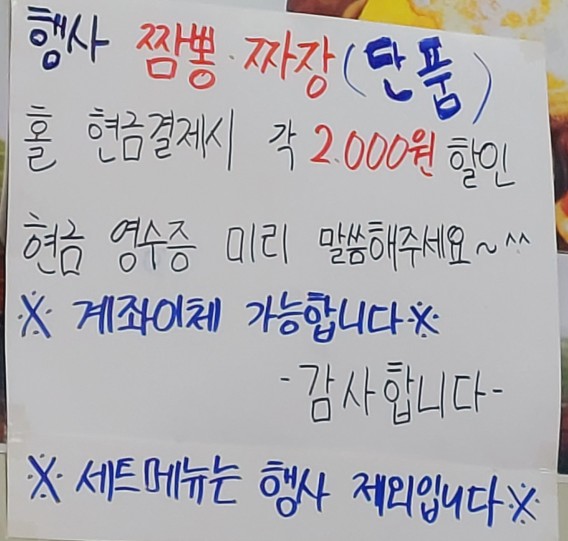 행사 짬뽕·짜장(단품)
홀 현금결제시 각 2.000원 할인
현금 영수증 미리 말씀해주세요~^^
※ 계좌이체 가능합니다※
-감사합니다-
※ 세트메뉴는 행사 제외입니다※